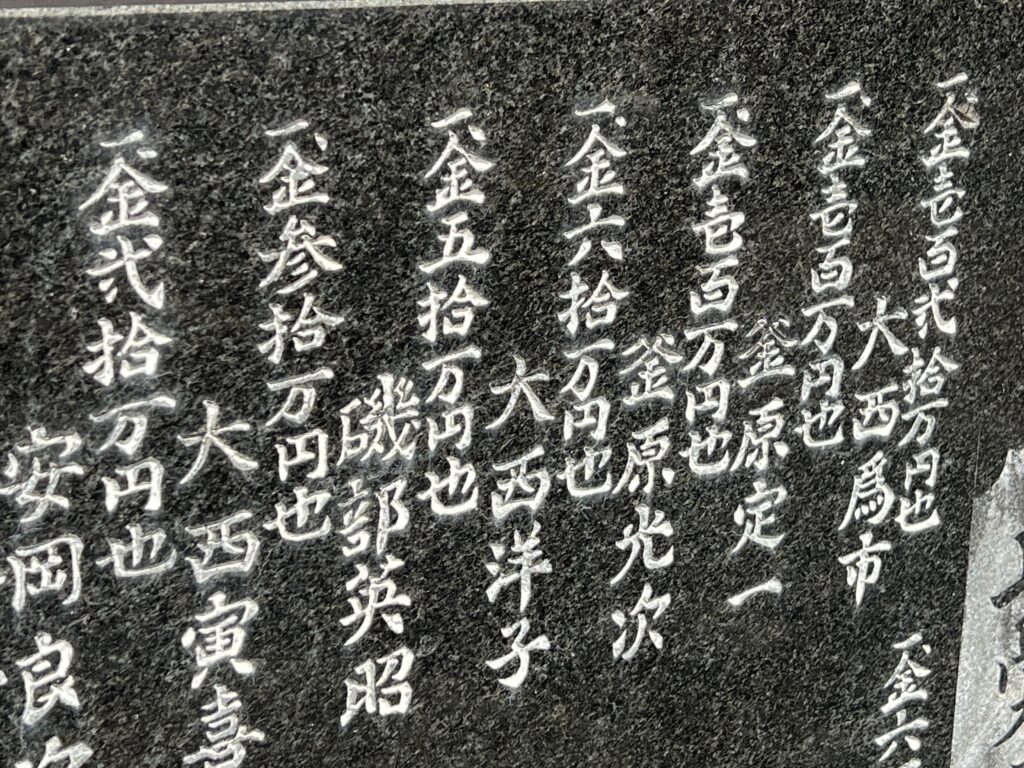 一、金壱百弐拾万円也
大西爲市
一、金壱百万円也
釜原定一
一、金壱百万円也
釜原光次
一、金六拾万円也
大西洋子
一、金五拾万円也
磯部英昭
一、金参拾万円也
大西寅喜
一、金弐拾万円也
安岡良
一、金六